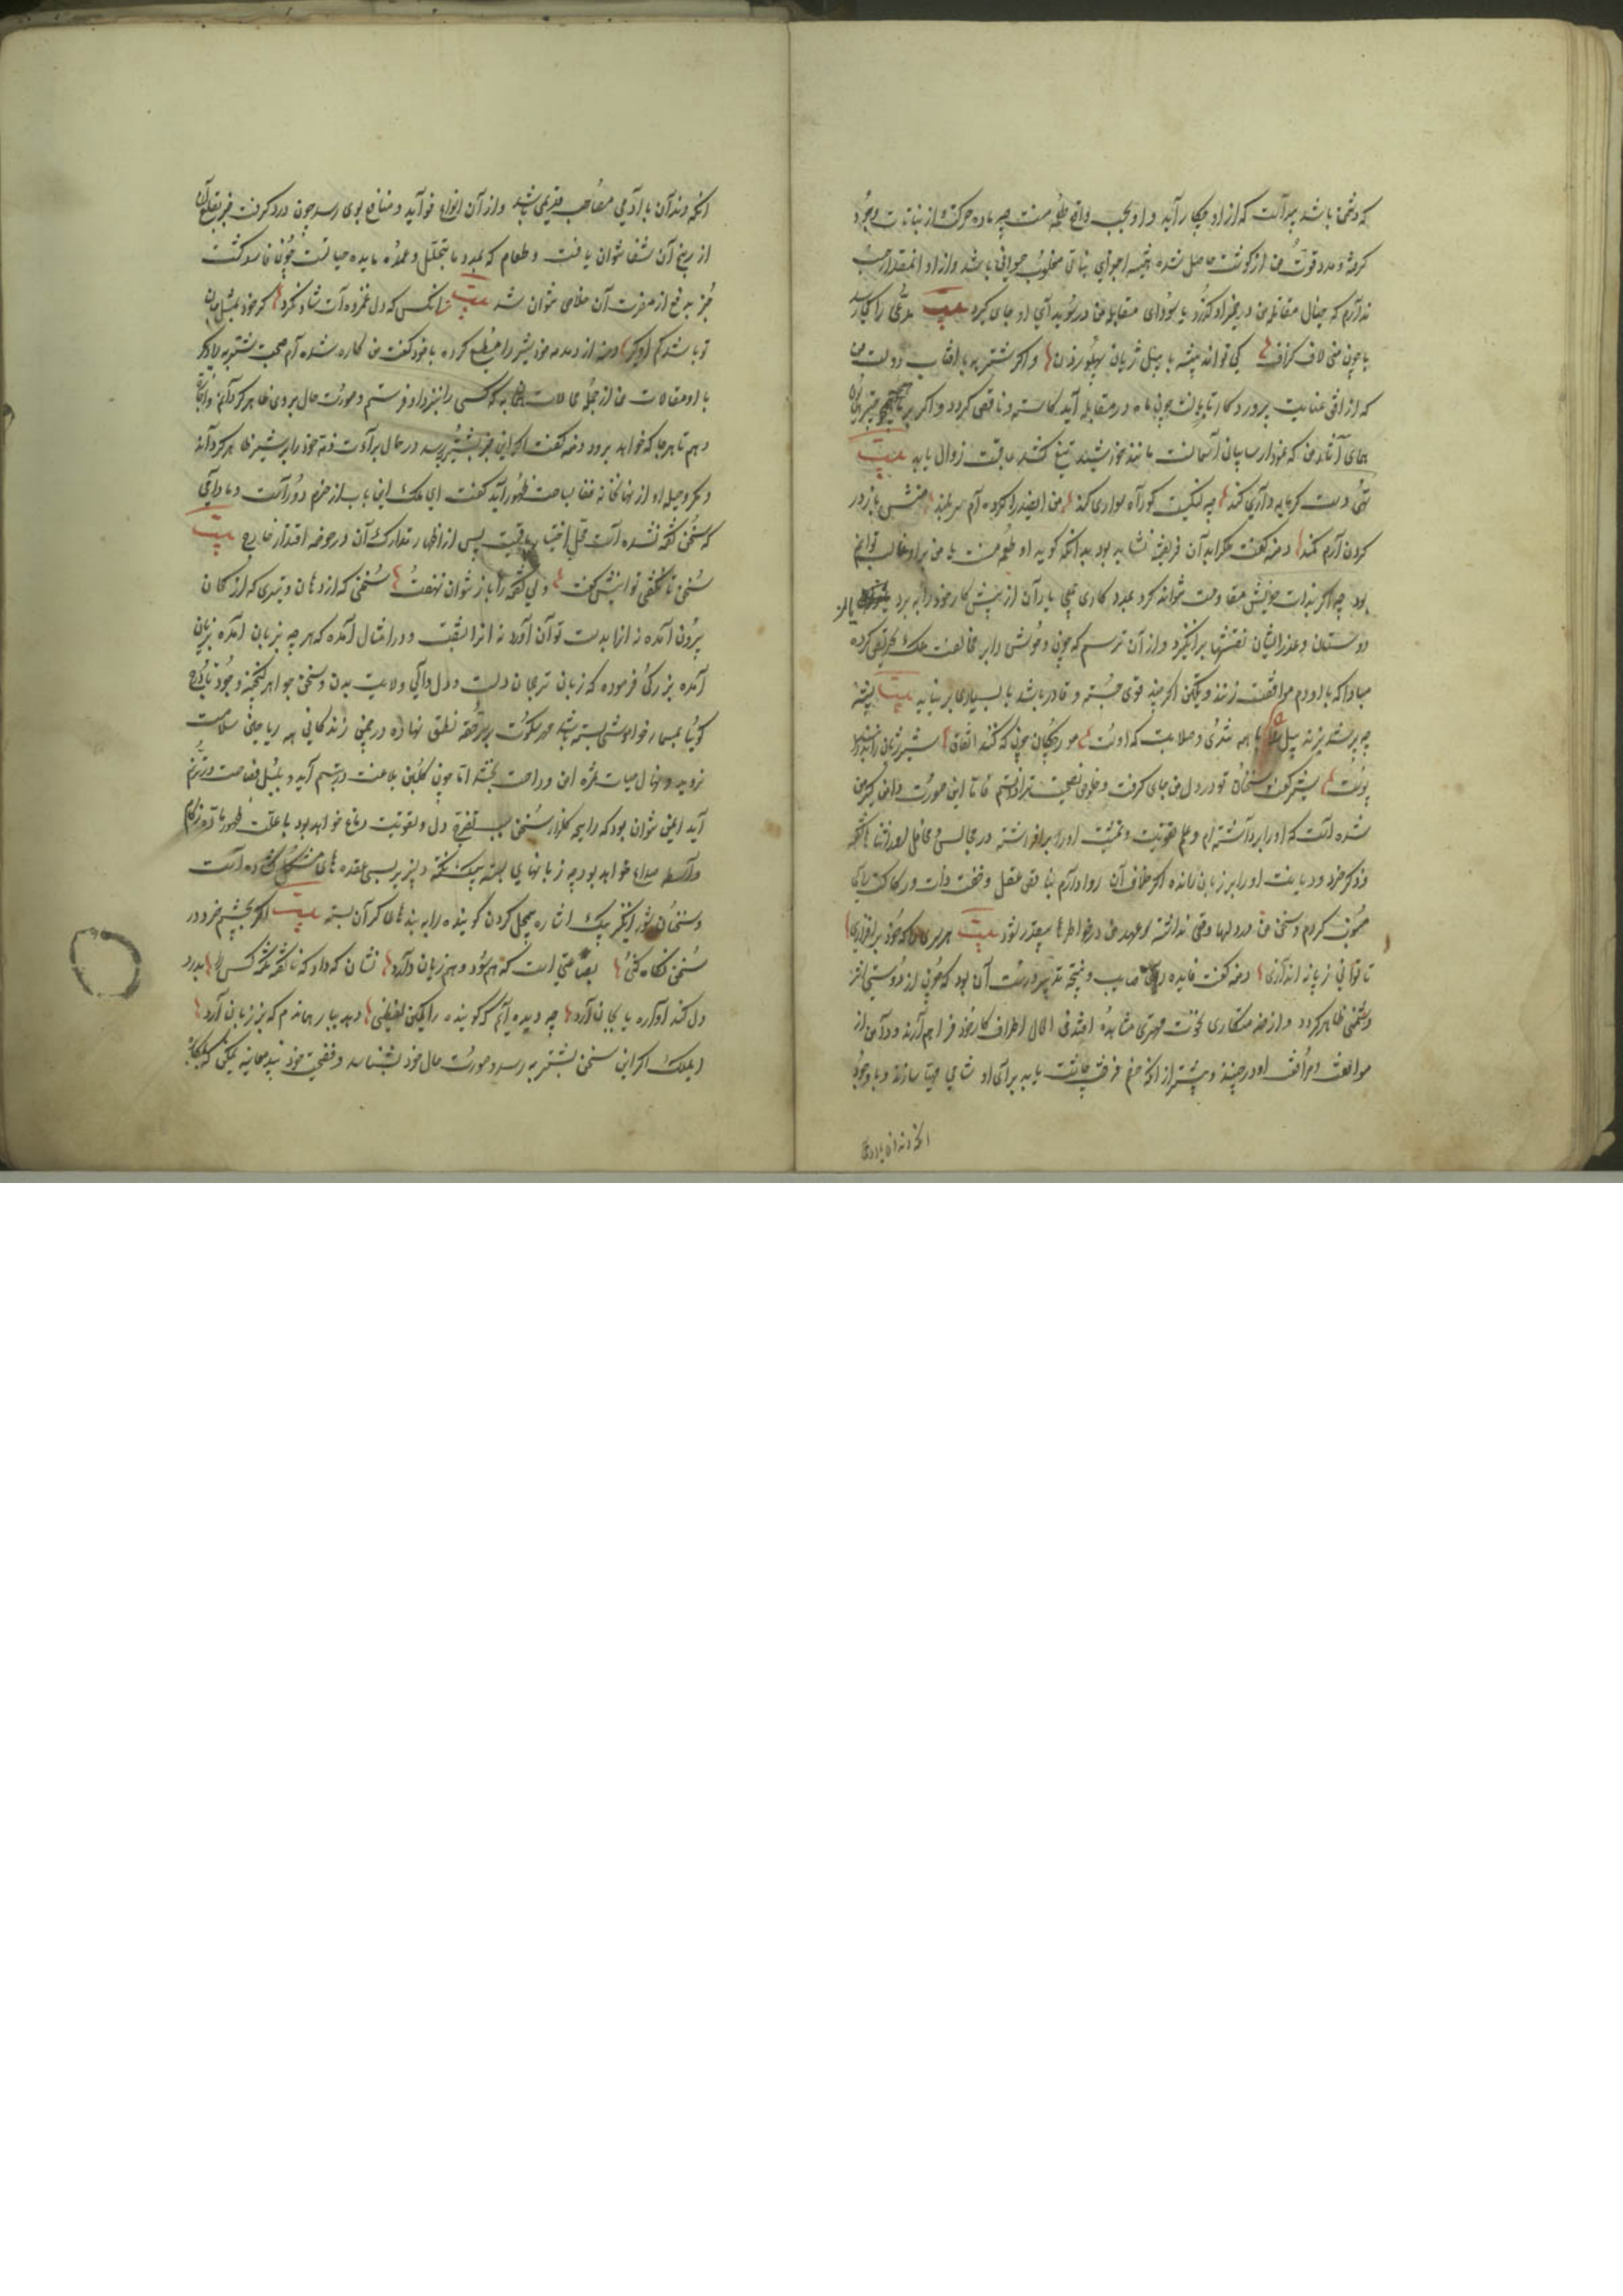 که دشمن باشد پیداست که از او چکار آید و او بحسب واقع طعمه منست چه ماده حرکت از نباتات وجود
گرفته و مدد قوت من از گوشت حاصل شده اجزای نباتی مغلوب حیوانی باشد و از او آنمقدار حساب
ندارم که خیال مقاتله من در ضمیر او گذرد یا سودای مقابله من در سویدای او جای گیرد بیت مدعی را کجا رسد
با چون منی لاف گزاف کی تواند پشه با پیل ژیان پهلو زدن و اگر شتربه با آفتاب دولت من
که از افق عنایت پرورد کار تابانست چون ماه در مقابله آید کاسته و ناقص گردد و اگر
همای که نمودار سایبان آسمانست مانند خورشید تیغ کشد عاقبت زوال یابد بیت
تهی دست گرمایه داری کند چه لنگیست کو راهواری کند من آن صید را کرده ام سربلند منش باز در
گردن آرم کمند دمنه گفت ملک را بدان فریفته نشاید بود بدانکه گوید او طعمه منست یا من بر او غالب توانم
بود چه اگر بذات خویش مقاومت نتواند کرد بمدد کاری یاران از پیش کار خود را به برد یا از
دوستان و عذر ایشان نقشها برانگیزد و از آن ترسم که چون وحوش را بر مخالفت ملک تحریض کرده
مبادا که با او دم موافقت زنند و یکتن اگر چند قوی جثه و قادر باشد با بسیاری بر نیاید بیت پشه
چو پر شد بزند پیل را با همه تندی و صلابت که اوست مورچگان چون که کنند اتفاق شیر ژیان را بدرانند
پوست شیر گفت سخنان تو در دل من جای گرفت و خلوص نصیحت ترا دانستم فاما این صورت دامن گیر من
شده است که او را برداشته ام و علم تقویت و تمشیت او را برافراشته در مجالس و محافل بعد از ثناها گفته
و ذکر خرد و دیانت او را بر زبان رانده اگر خلاف آن روا دارم بتناقض عقل و خفت ذات و رکاکت رای
منسوب گردم و سخن من در دلها وقعی نداشته و عهد من در خاطرها بیقدر شود بیت هر سری را که خود برافرازی
تا توانی ز پا نیندازی دمنه گفت فایده رای صایب و نتیجه تدبیر درست آن بود که چون از دوستی اثر
دشمنی ظاهر گردد و از خدمتکاری نخوت مهتری مشاهده افتد فی الحال اطراف کار خود فراهم آرند و دامن از
موافقت و مرافقت او در چینند و پیشتر از آنکه خصم فرصت چاشت یابد برای او شامی مهیا سازند و با وجود
آنکه دندان با آدمی
آنکه دندان با آدمی مصاحب قدیمی باشد و از آن انواع فواید و منافع بوی رسد چون درد گرفت جز بقلع آن
از رنج آن شفا نتوان یافت و طعام که مدد ما یتحلل و عمده مایده حیاتست چون فاسد گشت
جز بدفع از مضرت آن خلاص نتوان شد بیت هر آنکس که دل غمزده ات شاد نکرد گر خود بمثل جان
تو باشد کم او گیر دمنه از دمدمه خود شیر را مطیع کرده با خود گفت من کاره شده ام صحبت شتربه را دیگر
با او مقالات من از جمله محالات است به که کسی را بنزد او فرستم و صورت حال بروی ظاهر گردانم و اجازت
دهم تا هر جا که خواهد برود دمنه گفت اگر این خبر بشتربه رسد در حال براءت ذمه خود را بر شیر ظاهر گرداند
و مکر و حیله او از نهانخانه خفا بساحت ظهور آید گفت ای ملک این باب از حزم دور است و مادامی
که سخن گفته نشده است محل اختیار باقیست پس از اظهار تدارک آن در حوصله اقتدار خارج بیت
سخن تا نگفتی توانیش گفت ولی گفته را باز نتوان نهفت سخنی که از دهان و تیری که از کمان
بیرون آمده نه آنرا بدست توان آورد نه این را بشست و در امثال آمده که هر چه بزبان آمده بزیان
آمده بزرگی فرموده که زبان ترجمان دلست و دل والی ولایت بدن و سخن جواهر گنجینه وجود تا درج
گویا بمسمار خواموشی بسته باشد و مهر سکوت بر سر حقه نطق نهاده در چمن زندگانی همه ریاحین سلامت
روید و نهال حیات ثمره امن و راحت بخشد اما چون گلبن بلاغت در تبسم آید و بلبل فصاحت در ترنم
آید ایمن نتوان بود که رایحه گلزار سخن سبب تفریح دل و تقویت دماغ خواهد بود یا علت ظهور ماده زکام
و واسطه صداع خواهد بود چه زبانهای بسته بیک نکته دلپذیر بسی عقده های مشکل گشاده است
و سخنان شور انگیز بیک اشاره بیمحل گردن گوینده را به بندهای گران بسته بیت اگر بچشم خرد در
سخن نگاه کنی بضاعتی است که هم سود و هم زیان دارد نشان که داد که ناگفته نکته کس را بدرد
دل کند آواره یا بجان آرد چه دیده ایم که گوینده را یکی لفظی دهد بباد همان دم که بر زبان آرد
ای ملک اگر این سخن بشتربه رسد و صورت حال خود بشناسد و فضیحت خود ببیند یمکن که بمکابره